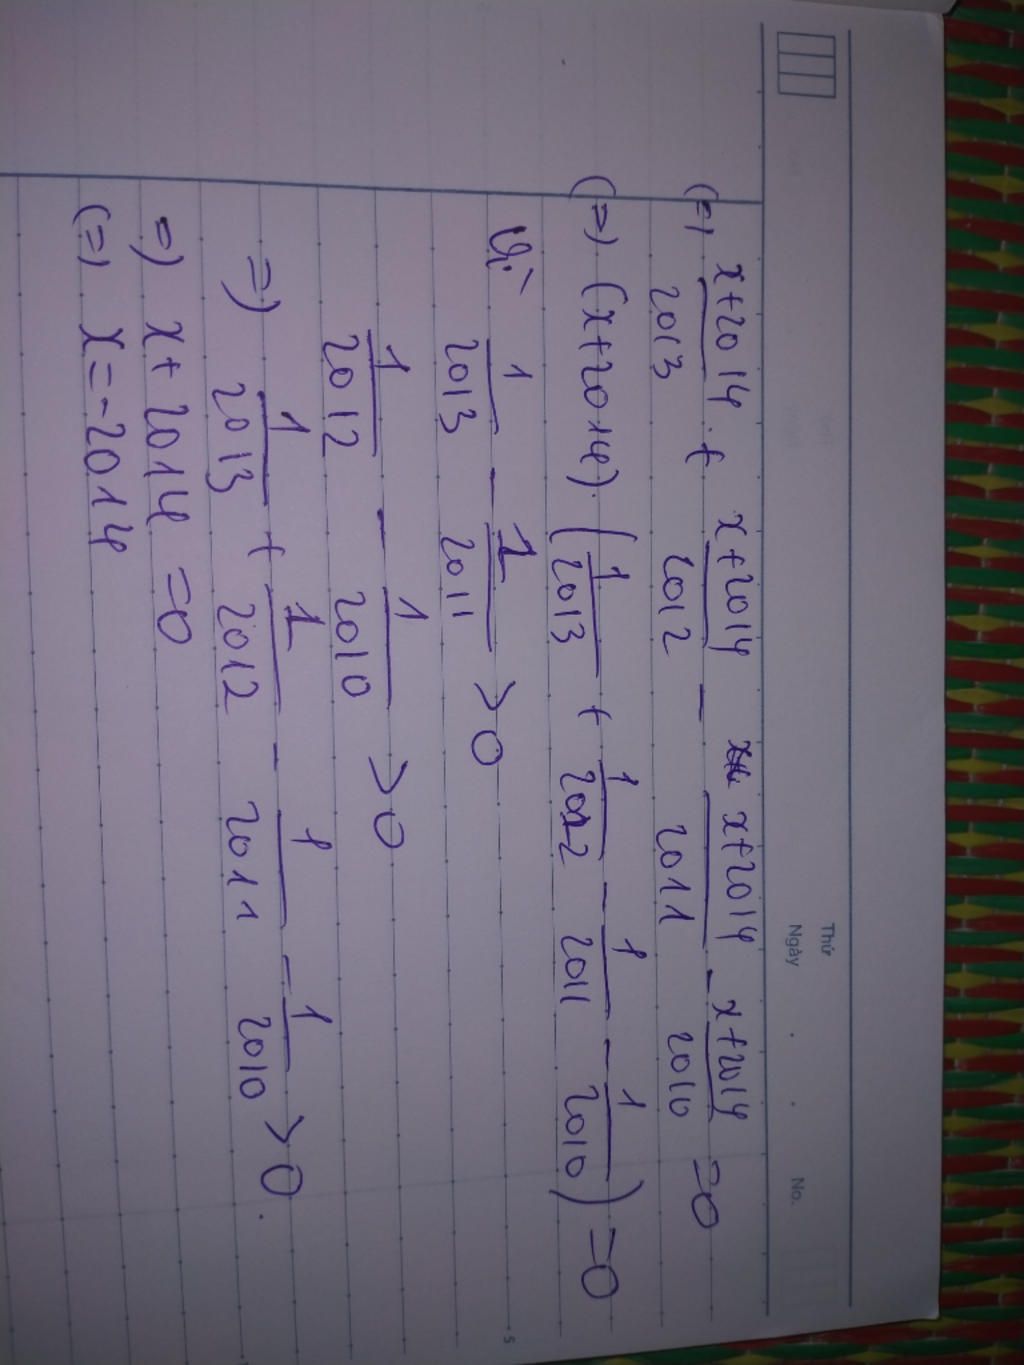 Thứ
Ngày . . No.
(=) x+2014/2013 + x+2014/2012 - x+2014/2011 - x+2014/2010 =0
(=) (x+2014).(1/2013 + 1/2012 - 1/2011 - 1/2010) =0
Vì 1/2013 - 1/2011 >0
1/2012 - 1/2010 >0
=) 1/2013 + 1/2012 - 1/2011 - 1/2010 >0.
=) x+2014 =0
(=) x=-2014
5